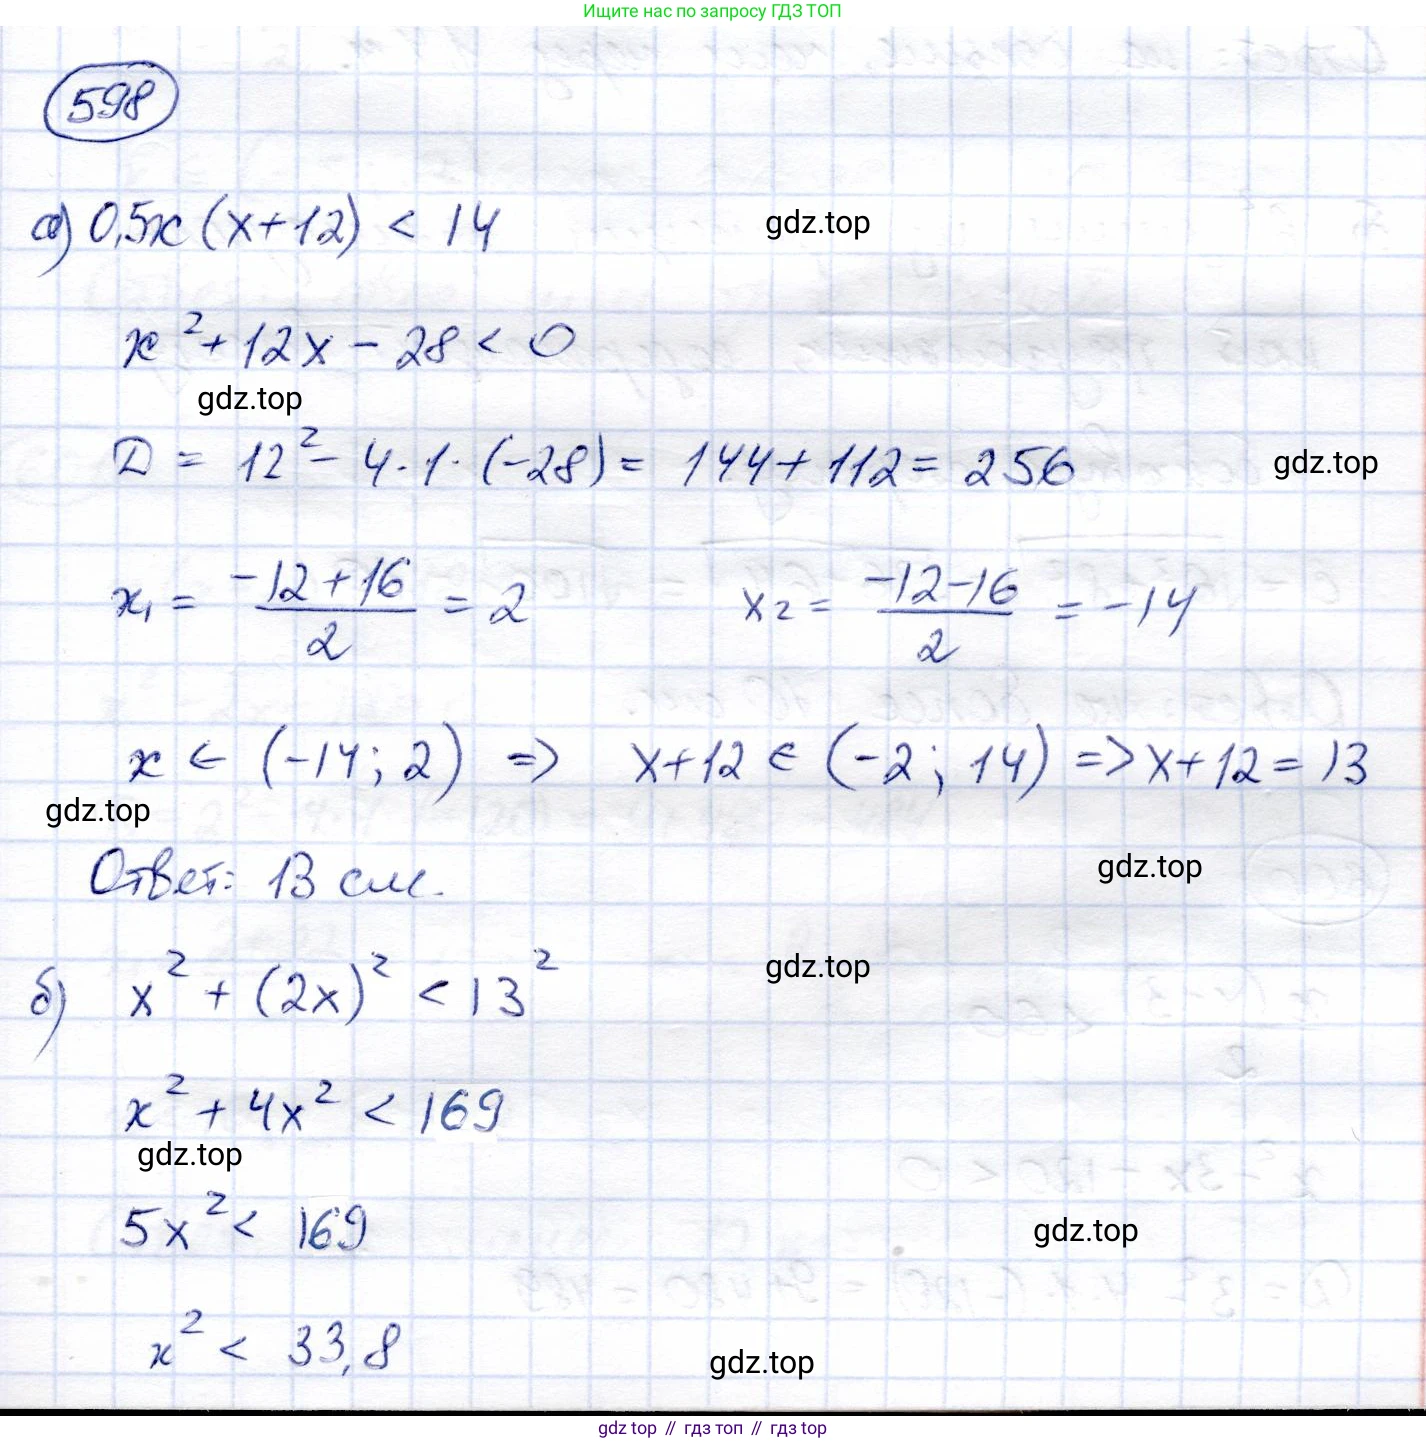 Ищите нас по запросу ГДЗ ТОП
598
а) 0,5x (x+12) < 14
gdz.top
x² + 12x - 28 < 0
gdz.top
D = 12² - 4 · 1 · (-28) = 144 + 112 = 256
gdz.top
x₁ = (-12+16)/2 = 2 x₂ = (-12-16)/2 = -14
x ∈ (-14; 2) => x+12 ∈ (-2; 14) => x+12 = 13
gdz.top
Ответ: 13 см.
gdz.top
gdz.top
б) x² + (2x)² < 13²
x² + 4x² < 169
gdz.top
5x² < 169
gdz.top
x² < 33,8
gdz.top
gdz top // гдз топ // gdz top